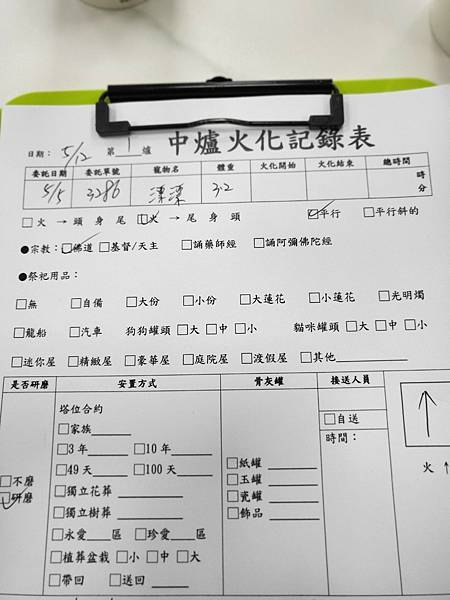 中爐火化記錄表
日期： 5/12 第 1 爐
委託日期 委託單號 寵物名 體重 火化開始 火化結束 總時間
5/5 3286 漂漂 3.2 時 分
□火 → 頭 身 尾 ☑火 → 尾 身 頭 ☑平行 □平行斜的
●宗教：☑佛道 □基督/天主 □誦藥師經 □誦阿彌佛陀經
●祭祀用品：
□無 □自備 □大份 □小份 □大蓮花 □小蓮花 □光明燭
□龍船 □汽車 狗狗罐頭 □大 □中 □小 貓咪罐頭 □大 □中 □小
□迷你屋 □精緻屋 □豪華屋 □庭院屋 □渡假屋 □其他
是否研磨 安置方式 骨灰罐 接送人員
□不磨
☑研磨
塔位合約
□家族
□3 年 □10 年
□49 天 □100 天
□獨立花葬
□獨立樹葬
□永愛 區 □珍愛 區
□植葬盆栽 □小 □中 □大
□帶回 □送回
□紙罐
□玉罐
□瓷罐
□飾品
□自送
時間：
↑
火 ↑